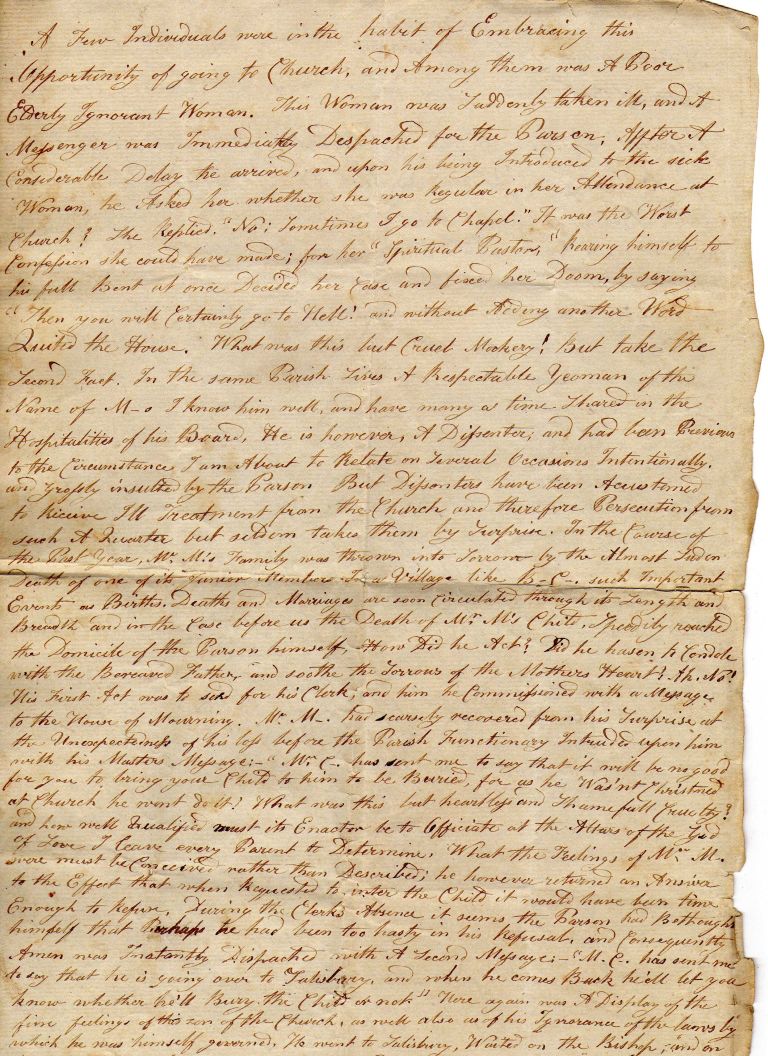 A Few Individuals were in the habit of Embracing this
Opportunity of going to Church, and Among them was A Poor
Elderly Ignorant Woman. This Woman was Suddenly taken ill, and A
Messenger was Immediatly Despached for the Parson, After A
Considerable Delay he arrived, and upon his being Introduced to the sick
Woman, he Asked her whether she was Regular in her Attendance at
Church? She Replied. "No; Sometimes I go to Chapel." It was the Worst
Confession she could have made; for her "Spiritual Pastor," hearing himself to
his full bent at once Decided her Case and fixed her Doom, by saying
"Then you will Certainly go to Hell! and without Adding another Word
Quited the House. What was this but Cruel Mockery! But take the
Second Fact. In the same Parish Lives A Respectable Yeoman of the
Name of M-s I know him well, and have many a time Shared in the
Hospitalities of his Board, He is however, A Dissenter; and had been Previous
to the Circumstance I am About to Relate on Several Occasions Intentionally.
and Grossly insulted by the Parson But Dissenters have been Acustomed
to Recive Ill Treatment from the Church and therefore Persecution from
such A Quarter but seldom takes them by Surprise. In the Course of
the Past Year, Mr. M's Family was thrown into Sorrow by the Almost Suden
Death of one of its Junior Members In a Village like B-C-. such Important
Events as Births. Deaths and Marriages are soon Circulated through its Length and
Breadth and in the Case before us the Death of Mr. M's Child, Speedily reached
the Domicile of the Parson himself, How Did he Act? Did he hasen to Condole
with the Bereaved Father, and soothe the Sorrows of the Mothers Heart? Ah. No!
His First Act was to send for his Clerk, and him he Commissioned with a Message
to the House of Mourning. Mr. M-. had scarsely recovered from his Surprise at
the Unexpectedness of his loss before the Parish Functionary Intruded upon him
with his Masters Message;- "Mr. C. has sent me to say that it will be no good
for you to bring your Child to him to be, Buried, for as he Was'nt Christned
at Church he wont do it! What was this but heartless and Shamefull Cruelty?
and how well Qualified must its Enactor be to Officiate at the Altars of the God
Of Love I leave every Parent to Determine, What the Feelings of Mr. M.
were must be Conceived rather than Described; he however returned an Answer
to the Effect that when Requested to inter the Child it would have been time
Enough to Refuse, During the Clerks Absence it seems the Parson had Bethought
himself that Perhaps he had been too hasty in his Refusal, and Consequently
Amen was Instantly Dispached with A Second Message:- "M. C. has sent me
to say that he is going over to Salisbury, and when he comes Back he'll let you
know whether he'll Bury the Child or not" Here again was A Display of the
fine feelings of this son of the Church, as well also as of his Ignorance of the laws by
which he was himself governed, He went to Salisbury, Waited on the Bishop, and on